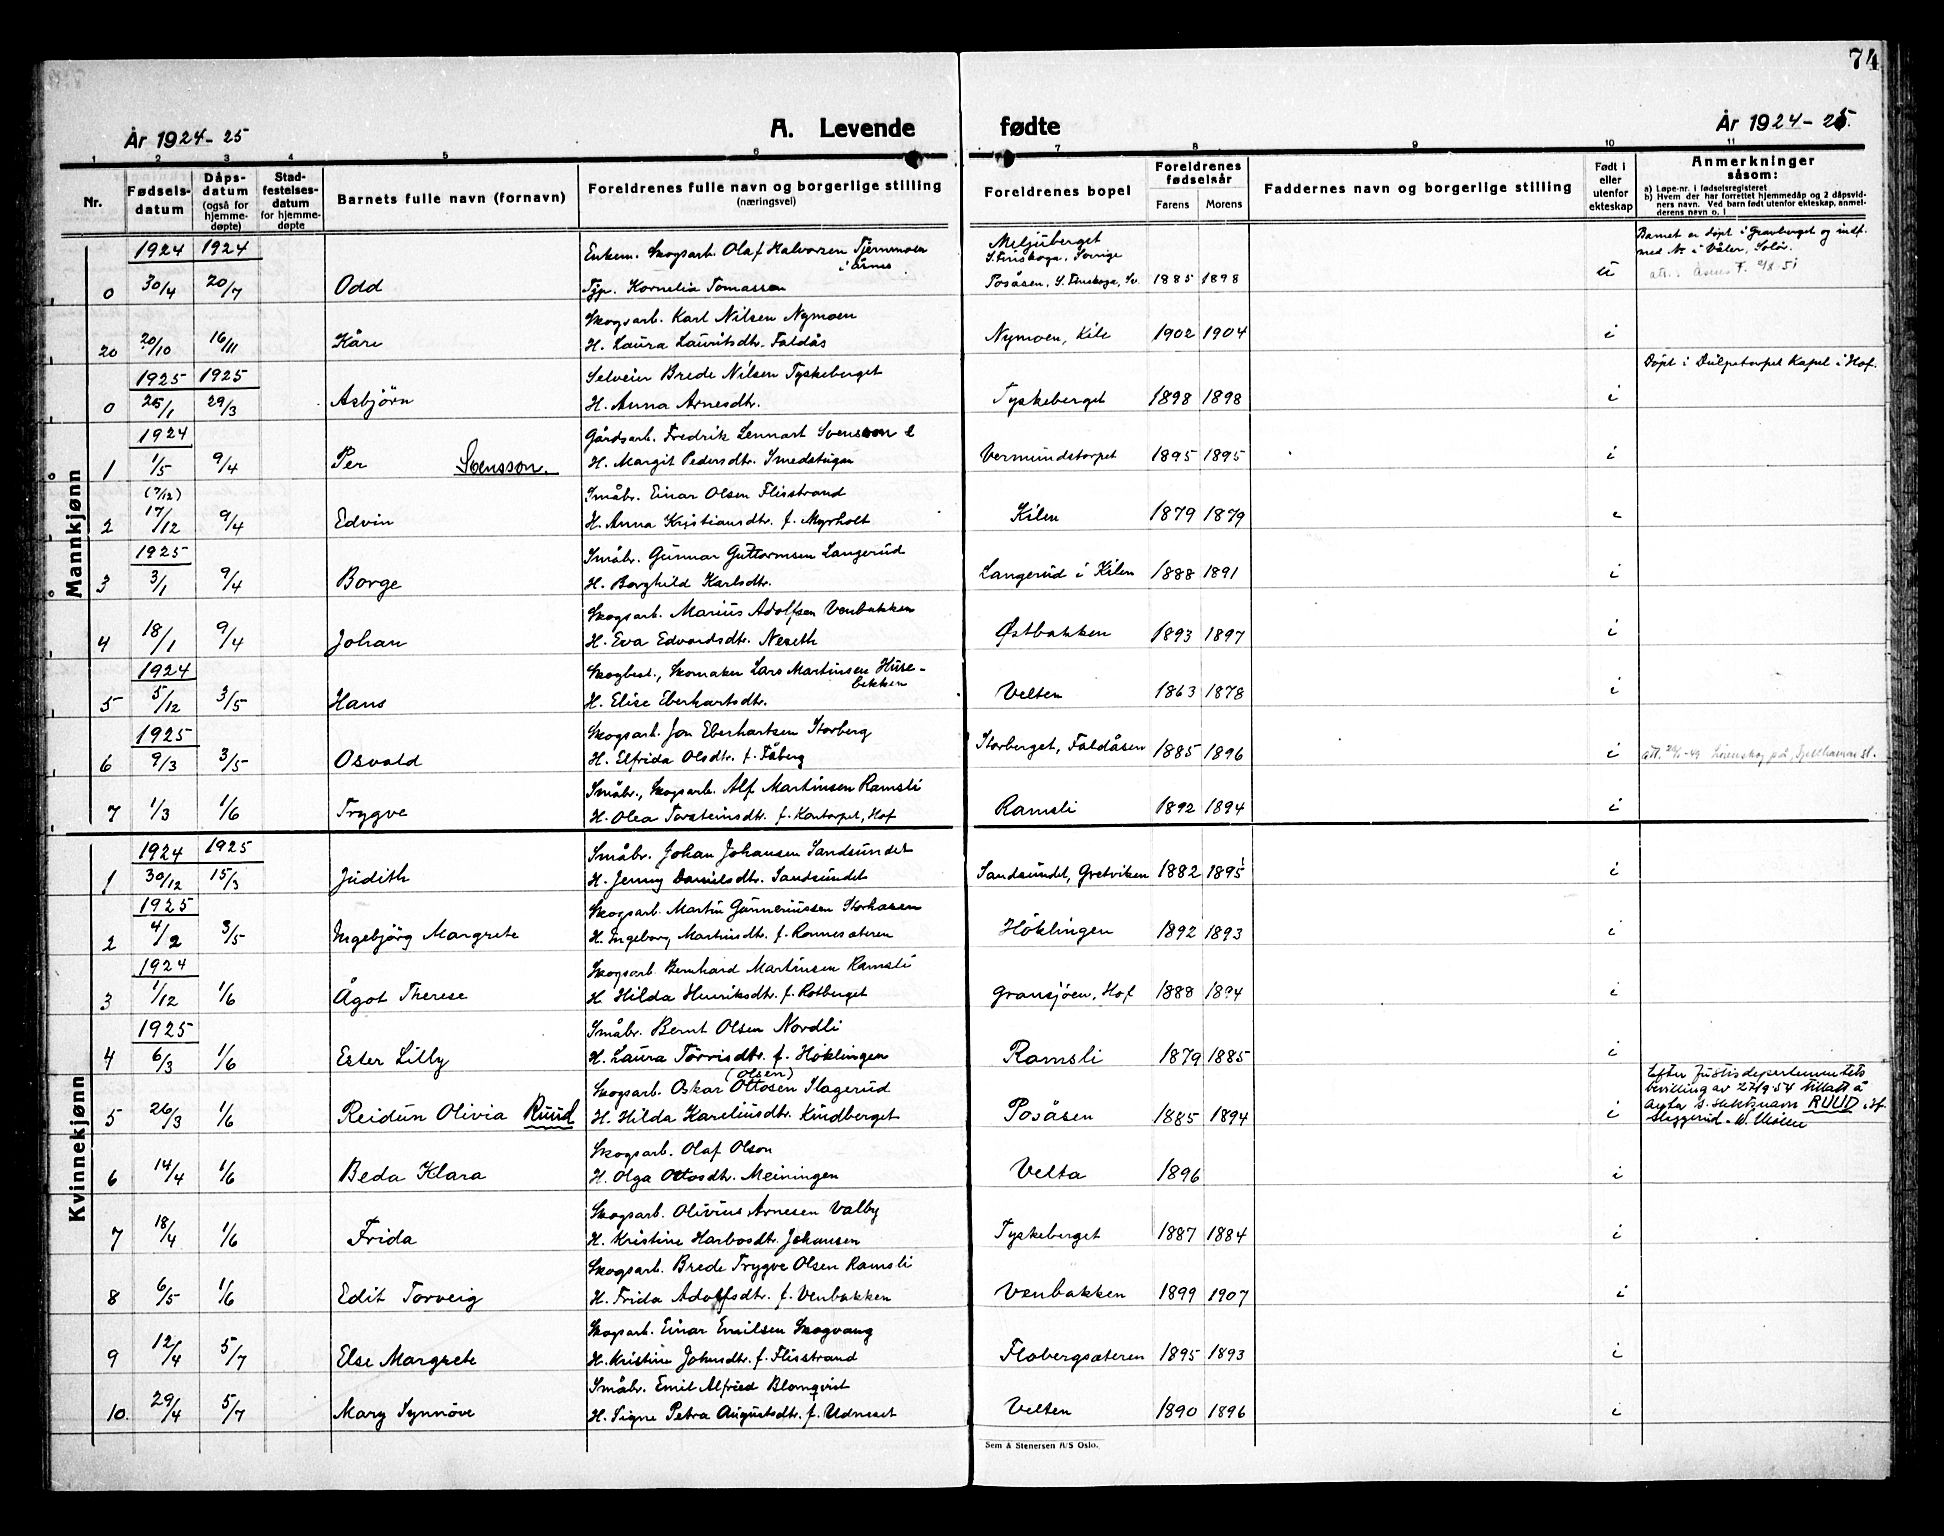 74
År 1924-25 A. Levende fødte År 1924-25.
1 2 3 4 5 6 7 8 9 10 11
Nr. Fødselsdatum Dåpsdatum (også for hjemmedøpte) Stadfestelsesdatum for hjemmedøpte Barnets fulle navn (fornavn) Foreldrenes fulle navn og borgerlige stilling (næringsvei) Foreldrenes bopel Foreldrenes fødselsår Farens Morens Faddernes navn og borgerlige stilling Født i eller utenfor ekteskap Anmerkninger såsom:
a) Løpe-nr. i fødselsregisteret
b) Hvem der har forrettet hjemmedåp og 2 dåpsvidners navn. Ved barn født utenfor ekteskap, anmelderens navn o. l
Mannkjønn
1924 1924 Enkem. Skogsarb. Olaf Halvorsen Tjernmoen i Årnes Meljuberget S. Finskoga, Sverige Barnet er døpt i Gravberget og indf. med № i Våler, Solør.
0 30/4 20/7 Odd Tjp. Kornelia Tomassen Posåsen, S. Finskoga, Sv 1885 1898 u
Skogsarb. Karl Nilsen Nymoen
20 20/10 16/11 Kåre H. Laura Lauritsdtr. Faldås Nymoen, Kile 1902 1904 i
1925 1925 Selveier Brede Nilsen Tyskeberget Døpt i Dulpetorpet Kapel i Hof.
0 25/1 29/3 Asbjörn H. Anna Arnesdtr. Tyskeberget 1898 1898 i
1924 Gårdsarb. Fredrik Lennart Svensson
1 1/5 9/4 Per Svensson. H. Margit Pedersdtr. Smedstugan Vermundstorpet 1895 1895 i
(7/12) Småbr. Einar Olsen Flisstrand
2 17/12 9/4 Edvin H. Anna Kristiansdtr. f. Myrholt Kilen 1879 1879
1925 Småbr. Gunnar Guttormsen Langerud
3 3/1 9/4 Borge H. Borghild Karlsdtr. Langerud i Kilen 1888 1891 i
Skogsarb. Marius Adolfsen Venbakken
4 18/1 9/4 Johan H. Eva Edvardsdtr. Neseth Østbakken 1893 1897 i
1924 Skogbest., Skomaker Lars Martinsen Husebekken
5 5/12 3/5 Hans H. Elise Eberhartsdtr. Velten 1863 1878 i
1925 Skogsarb. Jon Eberhartsen Storberg
6 9/3 3/5 Osvald H. Elfrida Olsdtr. f. Fåberg Storberget, Faldåsen 1885 1896 i
Småbr., Skogsarb. Alf Martinsen Ramsli
7 1/3 1/6 Trygve H. Olea Torsteinsdtr. f. Kantorpet, Hof Ramsli 1892 1894 i
Kvinnekjønn
1924 1925 Småbr. Johan Johansen Sandsundet
1 30/12 15/3 Judith H. Jenny Danielsdtr. Sandsundet Sandsundet, Gretviken 1882 1895 i
1925 Skogsarb. Martin Gunneriussen Storhasen
2 4/2 3/5 Ingebjörg Margrete H. Ingeborg Martinsdtr. f. Rannesæteren Höklingen 1892 1893 i
1924 Skogsarb. Bernhard Martinsen Ramsli
3 1/12 1/6 Ågot Therese H. Hilda Henriksdtr. f. Rotberget Gransjöen, Hof 1888 1894 i
1925 Småbr. Bernt Olsen Nordli
4 6/3 1/6 Ester Lilly H. Laura Törrisdtr. f. Höklingen Ramsli 1879 1885 i
Skogsarb. Oskar (Olsen) Ottosen Slagerud Efter Justisdepartementets bevilling av 27/9 54 tillatt å
5 26/3 1/6 Reidun Olivia Ruud H. Hilda Kareliusdtr. Kindberget Posåsen 1885 1894 i slektsnavn RUUD
6 14/4 1/6 Beda Klara Skogsarb. Olaf Olson
H. Olga Ottosdtr. Meiningen Velta 1896 i
Skogsarb. Olivius Arnesen Valby
7 18/4 1/6 Frida H. Kristine Harbosdtr. Johansen Tyskeberget 1887 1884 i
Skogsarb. Brede Trygve Olsen Ramsli
8 6/5 1/6 Edit Torveig H. Frida Adolfsdtr. f. Venbakken Venbakken 1899 1907 i
Skogsarb. Einar Emilsen Skogvang
9 12/4 5/7 Else Margrete H. Kristine Johnsdtr. f. Flisstrand Flobergsæteren 1895 1893 i
Småbr. Emil Alfried Blomqvist
10. 29/4 5/7 Mary Synnöve H. Signe Petra Augustsdtr. f. Udneset Velten 1890 1896 i
Sem & Stenersen A/S Oslo.